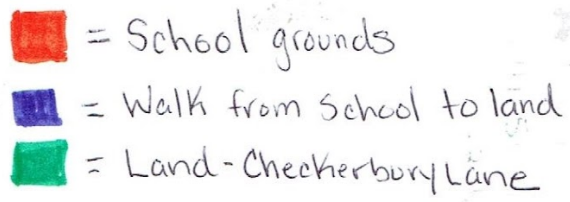 = School grounds
= Walk from School to land
= Land-Checkerbury Lane